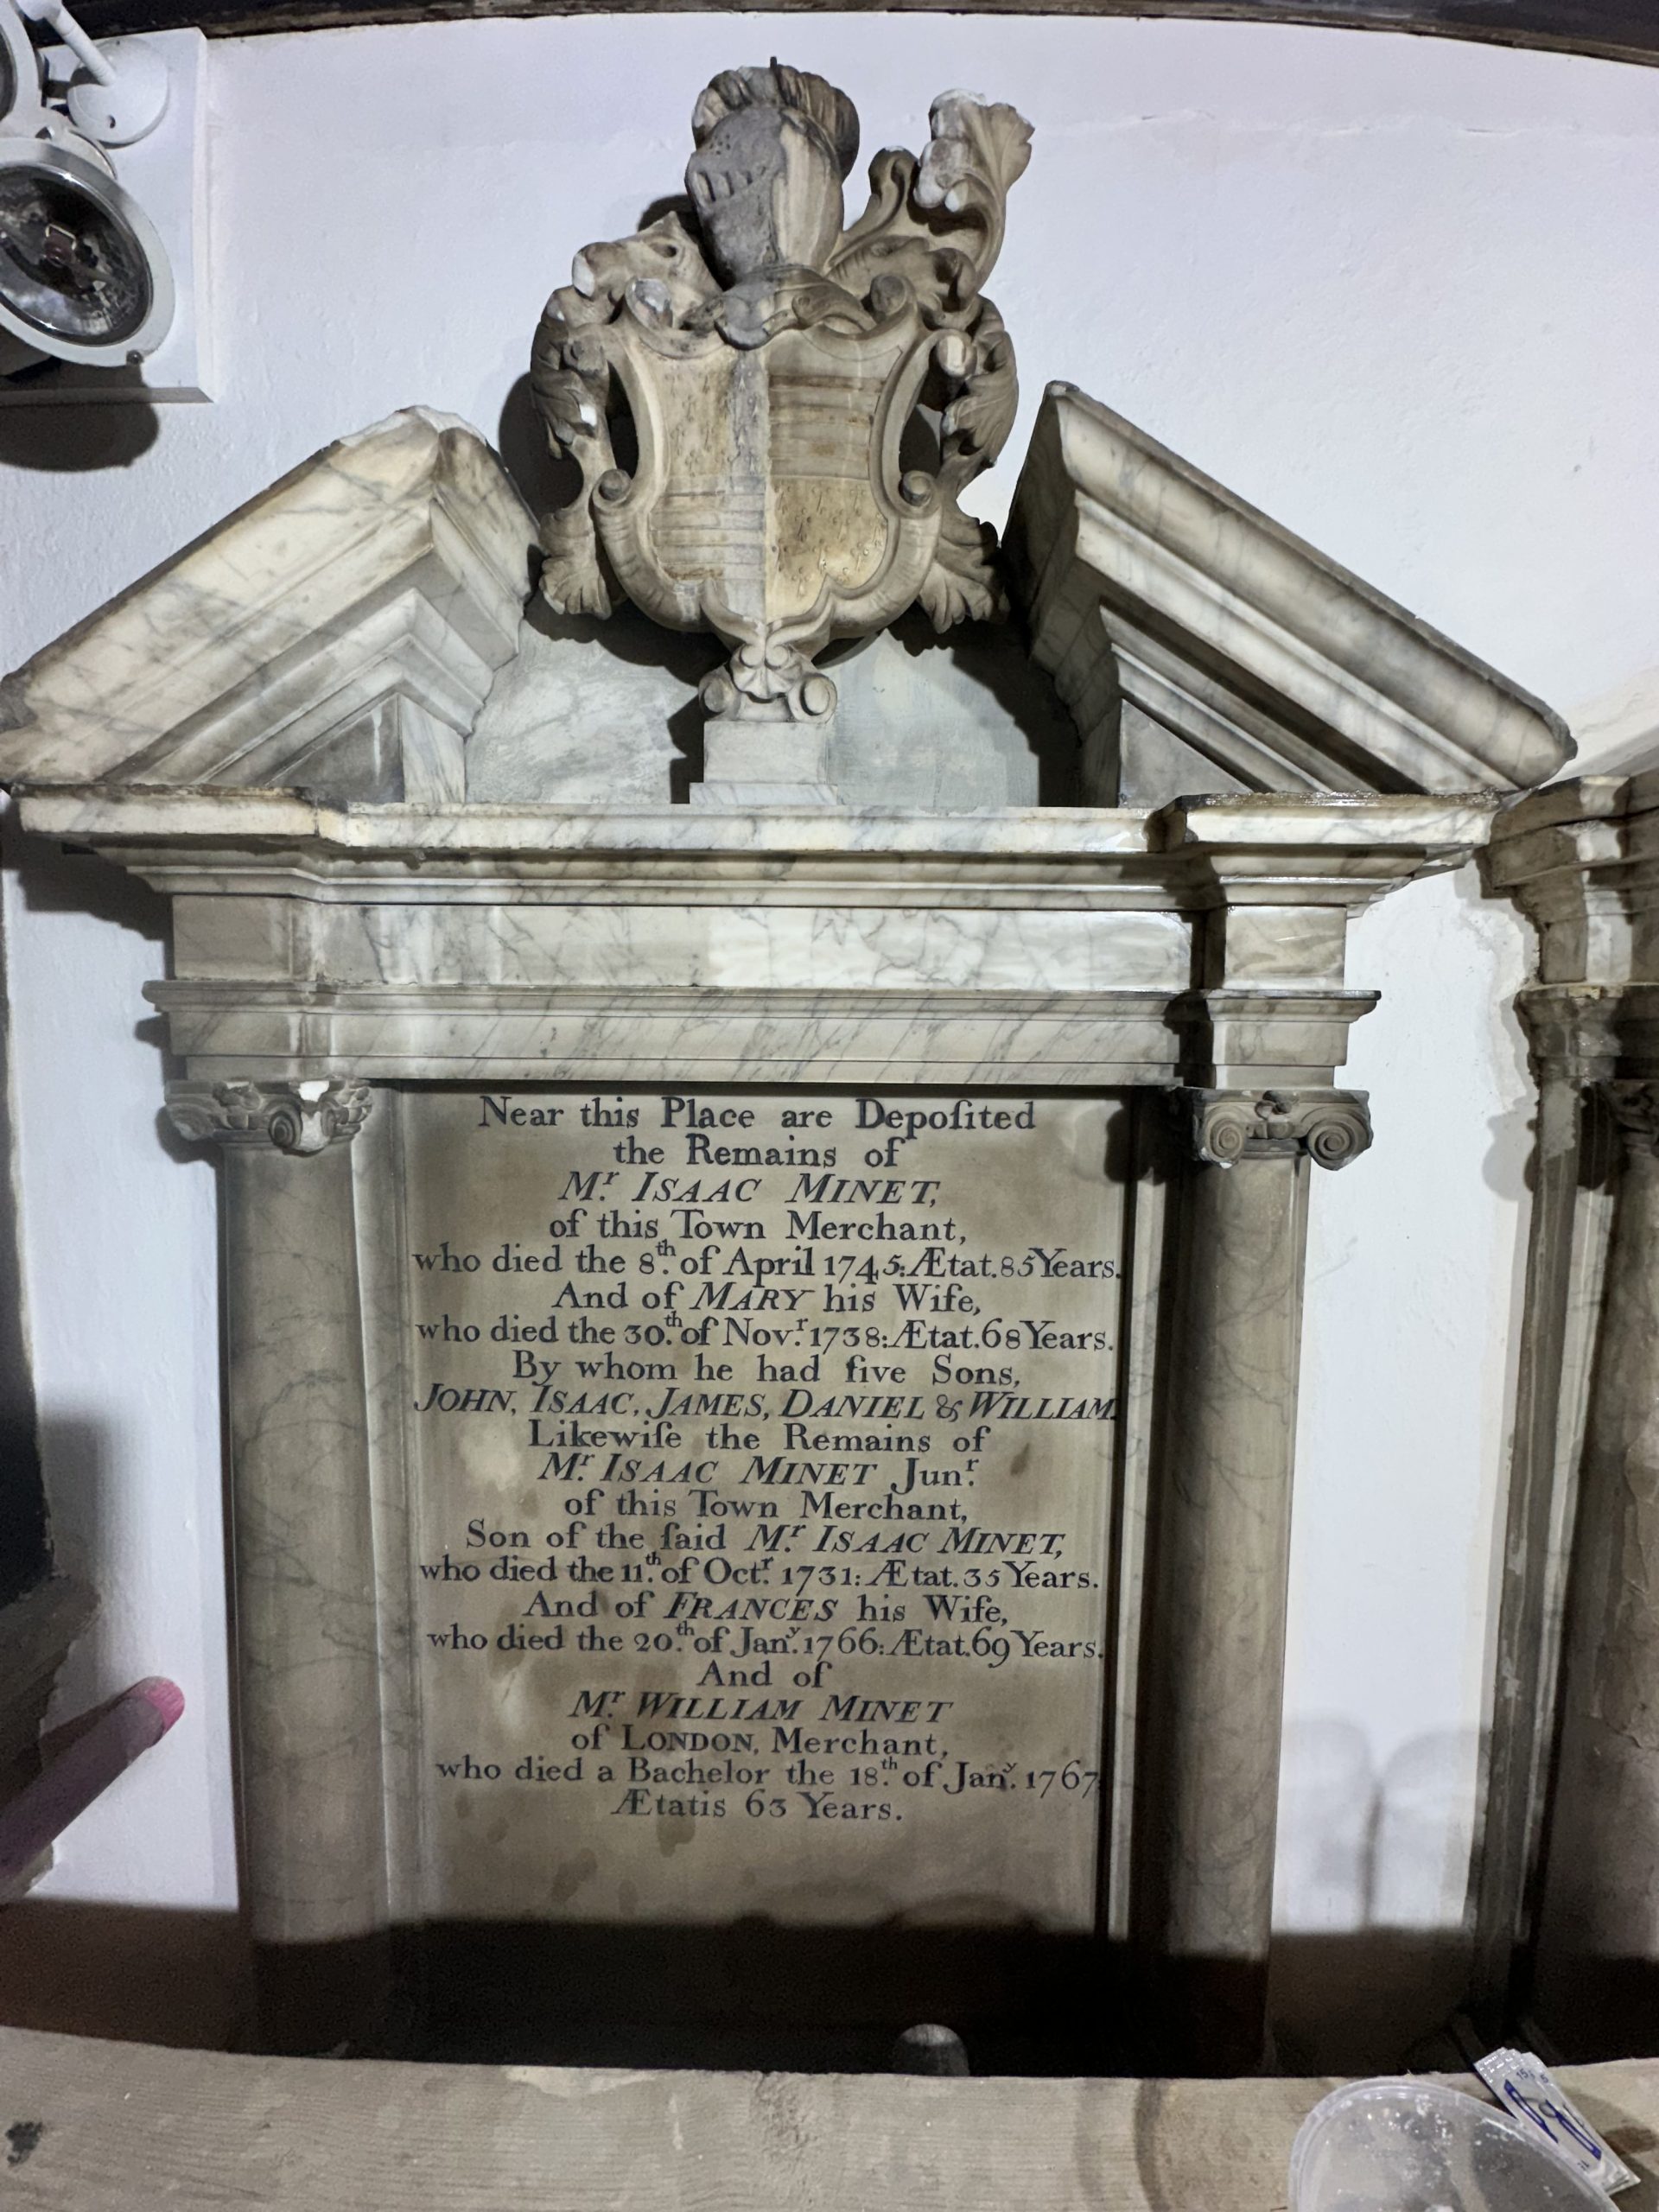 Near this Place are Depoſited
the Remains of
Mr. ISAAC MINET,
of this Town Merchant,
who died the 8th. of April 1745: Ætat. 85 Years.
And of MARY his Wife,
who died the 30th. of Novr. 1738: Ætat. 68 Years.
By whom he had five Sons,
JOHN, ISAAC, JAMES, DANIEL & WILLIAM.
Likewiſe the Remains of
Mr. ISAAC MINET Junr.
of this Town Merchant,
Son of the ſaid Mr. ISAAC MINET,
who died the 11th. of Octr. 1731: Ætat. 35 Years.
And of FRANCES his Wife,
who died the 20th. of Jany. 1766: Ætat. 69 Years.
And of
Mr. WILLIAM MINET
of LONDON, Merchant,
who died a Bachelor the 18th. of Jany. 1767
Ætatis 63 Years.